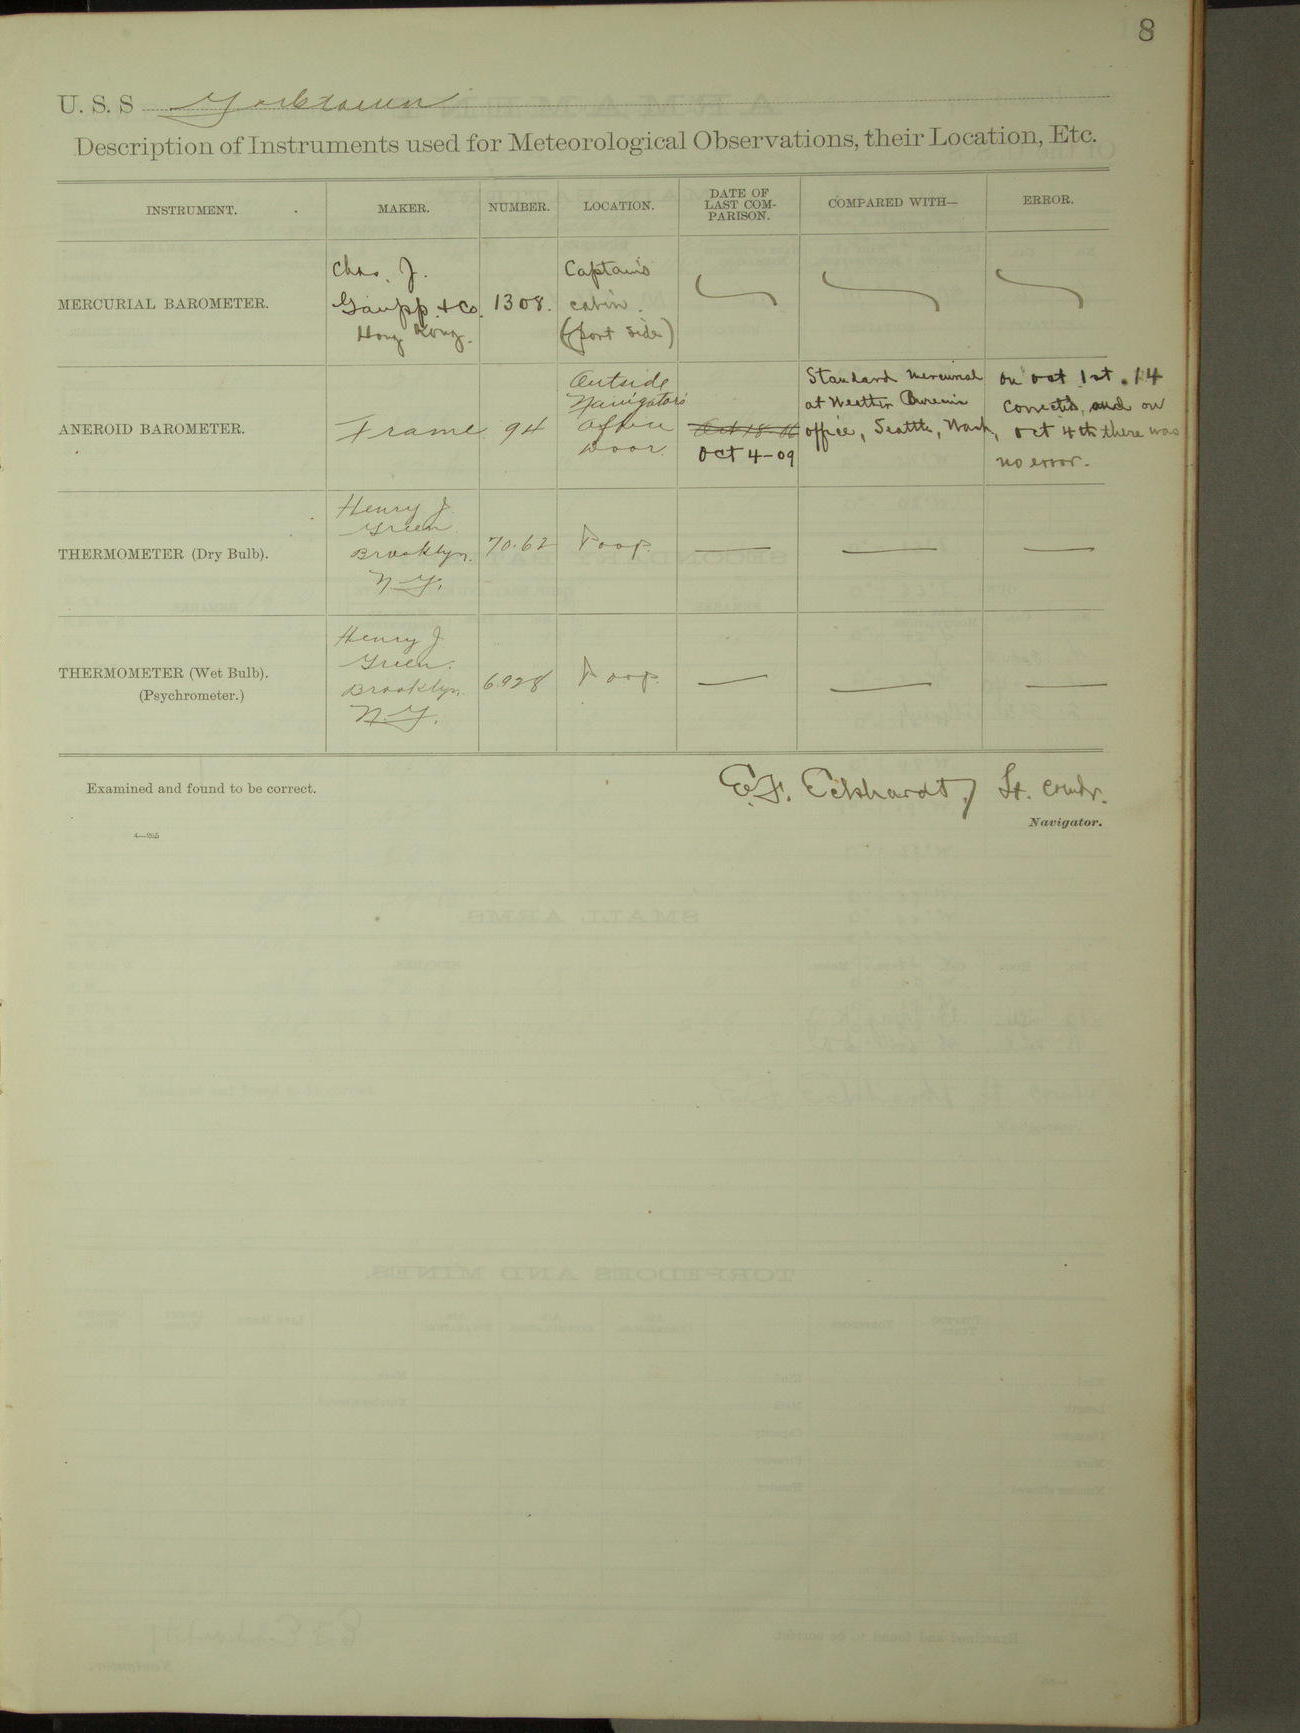 8
U. S. S Yorktown
Description of Instruments used for Meteorological Observations, their Location, Etc.
INSTRUMENT. MAKER. NUMBER. LOCATION. DATE OF LAST COM- PARISON. COMPARED WITH— ERROR.
MERCURIAL BAROMETER.
Chas. J.
Gaupp. & Co.
Hong Kong.
1308.
Captain's
cabin.
(port side)
ANEROID BAROMETER.
Frame
94
Outside
Navigator's
Office
Door.
Oct 4-09
Standard Mercurial
at Weather Bureau
office, Seattle, Wash,
on Oct 1st .14
corrected, and on
Oct 4th there was
no error.
THERMOMETER (Dry Bulb).
Henry J.
Green
Brooklyn.
N.Y.
70.62
Poop.
THERMOMETER (Wet Bulb).
(Psychrometer.)
Henry J
Green.
Brooklyn
N.Y.
6928
Poop.
Examined and found to be correct.
E.F. Eckhardt, Lt. Comdr.
Navigator.
4—265